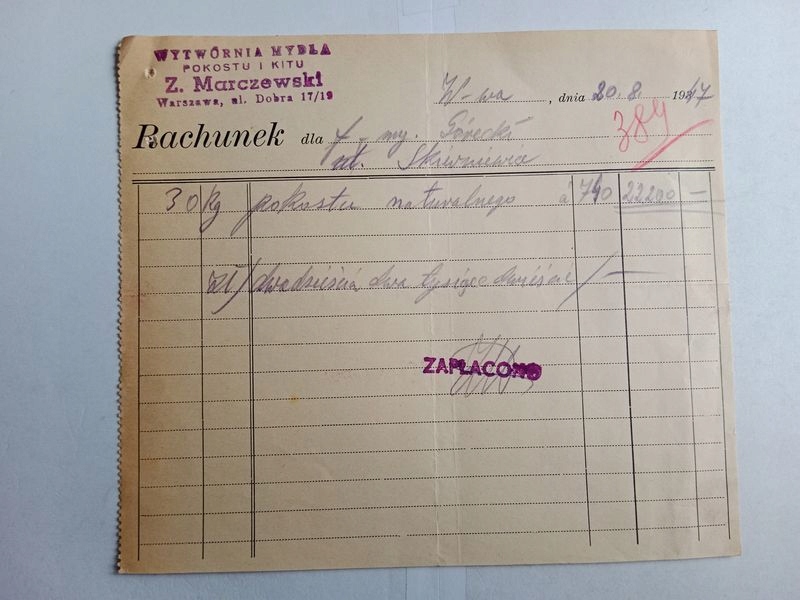 WYTWÓRNIA MYDŁA
POKOSTU I KITU
Z. Marczewski
Warszawa, ul. Dobra 17/19
W-wa, dnia 20.8. 1947
389
Rachunek dla f-my Górecki
Skierniewice
30 Kg pokostu naturalnego á 740 22200 —
Zł) dwadzieścia dwa tysiące dwieście /—
ZAPŁACONO